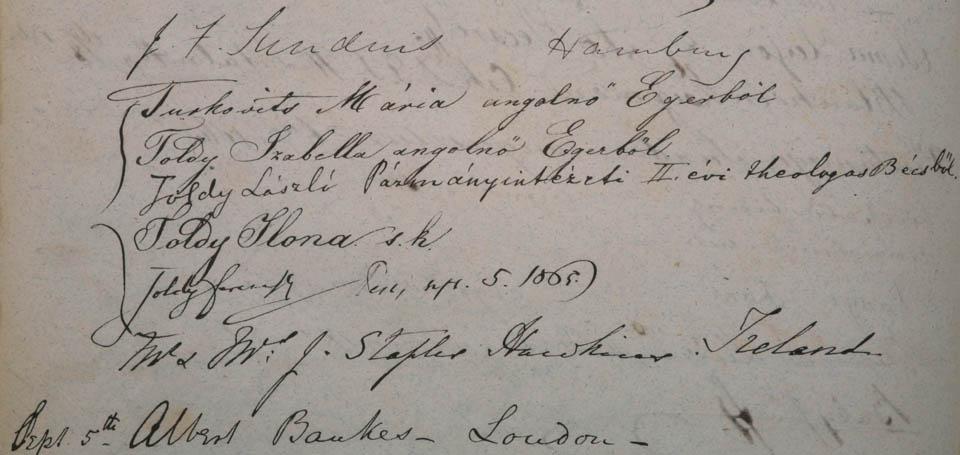 J. F. Hamburg
Turkovits Mária angolnő Egerből
Toldy Izabella angolnő Egerből
Toldy László Pázmányintézeti II. évi theologas Bécsből.
Toldy Ilona s.k.
Toldy 5. 1865.
Mr & Mrs. J. Staples Ireland
Sept. 5th Albert Bankes - London -